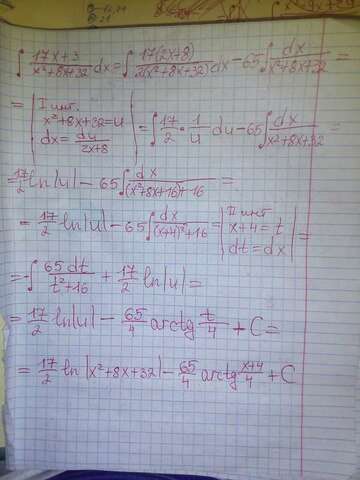 ∫ 17x+3/x²+8x+32 dx = ∫ 17(2x+8)/2(x²+8x+32) dx − 65∫ dx/x²+8x+32 =
= | I инт. x²+8x+32=u dx = du/2x+8 | = ∫ 17/2 · 1/u du − 65∫ dx/x²+8x+32 =
= 17/2 ln|u| − 65∫ dx/(x²+8x+16)+16 =
= 17/2 ln|u| − 65∫ dx/(x+4)²+16 = | II инт x+4=t dt=dx | =
= −∫ 65dt/t²+16 + 17/2 ln|u| =
= 17/2 ln|u| − 65/4 arctg t/4 + C =
= 17/2 ln|x²+8x+32| − 65/4 arctg x+4/4 + C